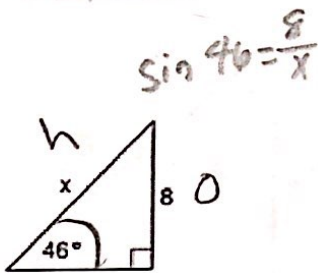 sin 46 = 8/x
h
x
8 O
46°